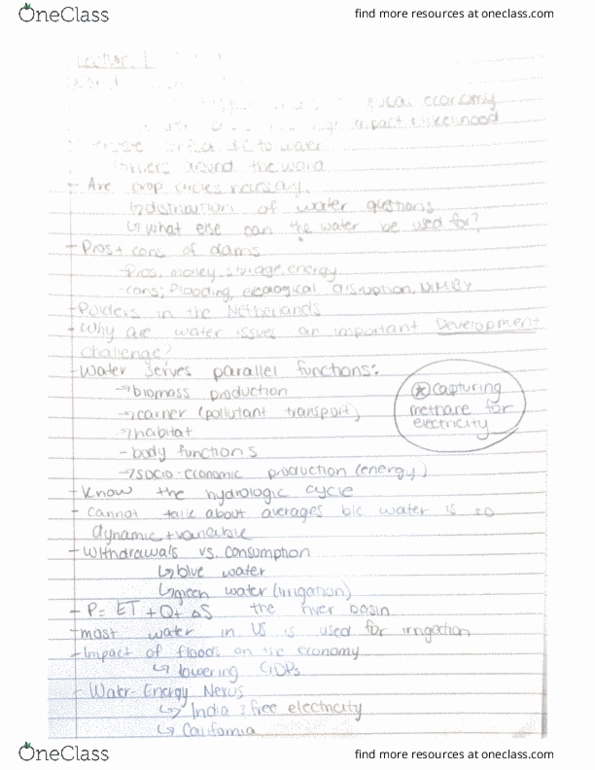 OneClass
find more resources at oneclass.com
Lecture 1
economy
impact
to water
around the world
- Are crop circles necessary.
↳ distribution of water questions
↳ what else can the water be used for?
- Pros + cons of dams
- Pros: money, storage, energy
- cons: flooding, ecological disruption, NIMBY
- Polders in the Netherlands
- Why are water issues an important Development
challenge?
- Water serves parallel functions:
→ biomass production
→ carrier (pollutant transport)
→ habitat
- body functions
→ socio-economic production (energy)
⊛ capturing
methane for
electricity
- Know the hydrologic cycle
- cannot talk about averages b/c water is so
dynamic + variable
- Withdrawals vs. consumption
↳ blue water
↳ green water (irrigation)
- P = ET + Q + ΔS the river basin
- most water in US is used for irrigation
- Impact of floods on the economy
↳ lowering GDPs
- Water-Energy Nexus
↳ India: free electricity
↳ California
OneClass
find more resources at oneclass.com